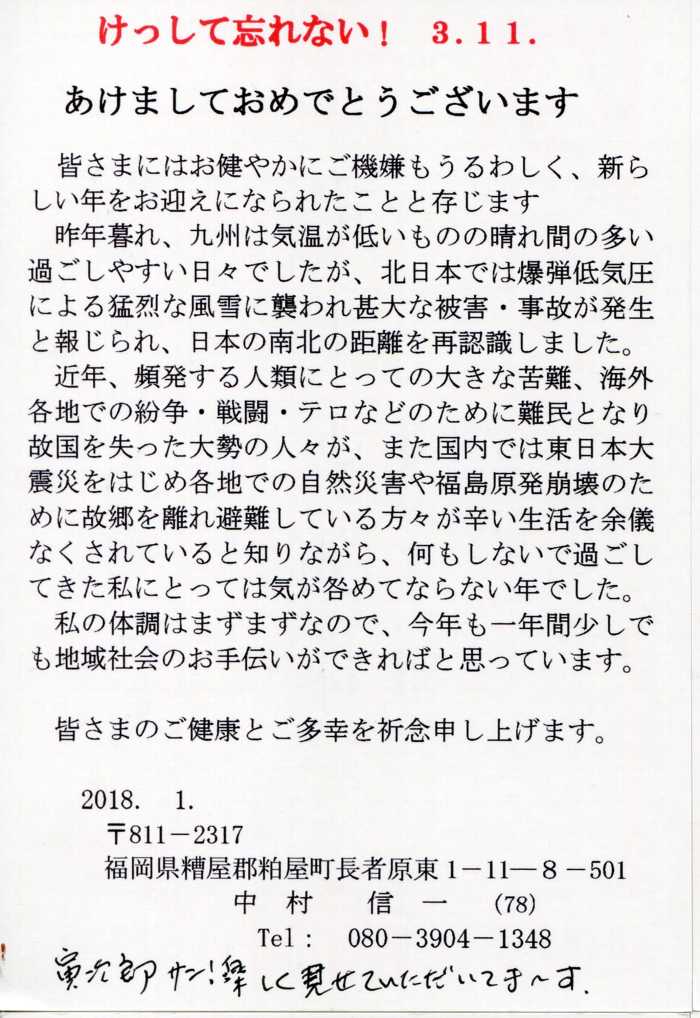 けっして忘れない！　3.11.
あけましておめでとうございます
皆さまにはお健やかにご機嫌もうるわしく、新ら
しい年をお迎えになられたことと存じます
昨年暮れ、九州は気温が低いものの晴れ間の多い
過ごしやすい日々でしたが、北日本では爆弾低気圧
による猛烈な風雪に襲われ甚大な被害・事故が発生
と報じられ、日本の南北の距離を再認識しました。
近年、頻発する人類にとっての大きな苦難、海外
各地での紛争・戦闘・テロなどのために難民となり
故国を失った大勢の人々が、また国内では東日本大
震災をはじめ各地での自然災害や福島原発崩壊のた
めに故郷を離れ避難している方々が辛い生活を余儀
なくされていると知りながら、何もしないで過ごし
てきた私にとっては気が咎めてならない年でした。
私の体調はまずまずなので、今年も一年間少しで
も地域社会のお手伝いができればと思っています。
皆さまのご健康とご多幸を祈念申し上げます。
2018.　1.
〒811－2317
福岡県糟屋郡粕屋町長者原東1－11―8－501
中　村　　信　一　　(78)
Tel：　080－3904－1348
寅次郎サン！楽しく見せていただいてま～す．